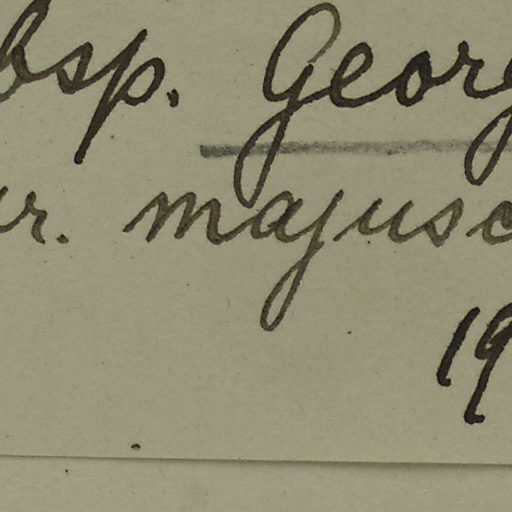 bsp. Georg
ur. majusc
19